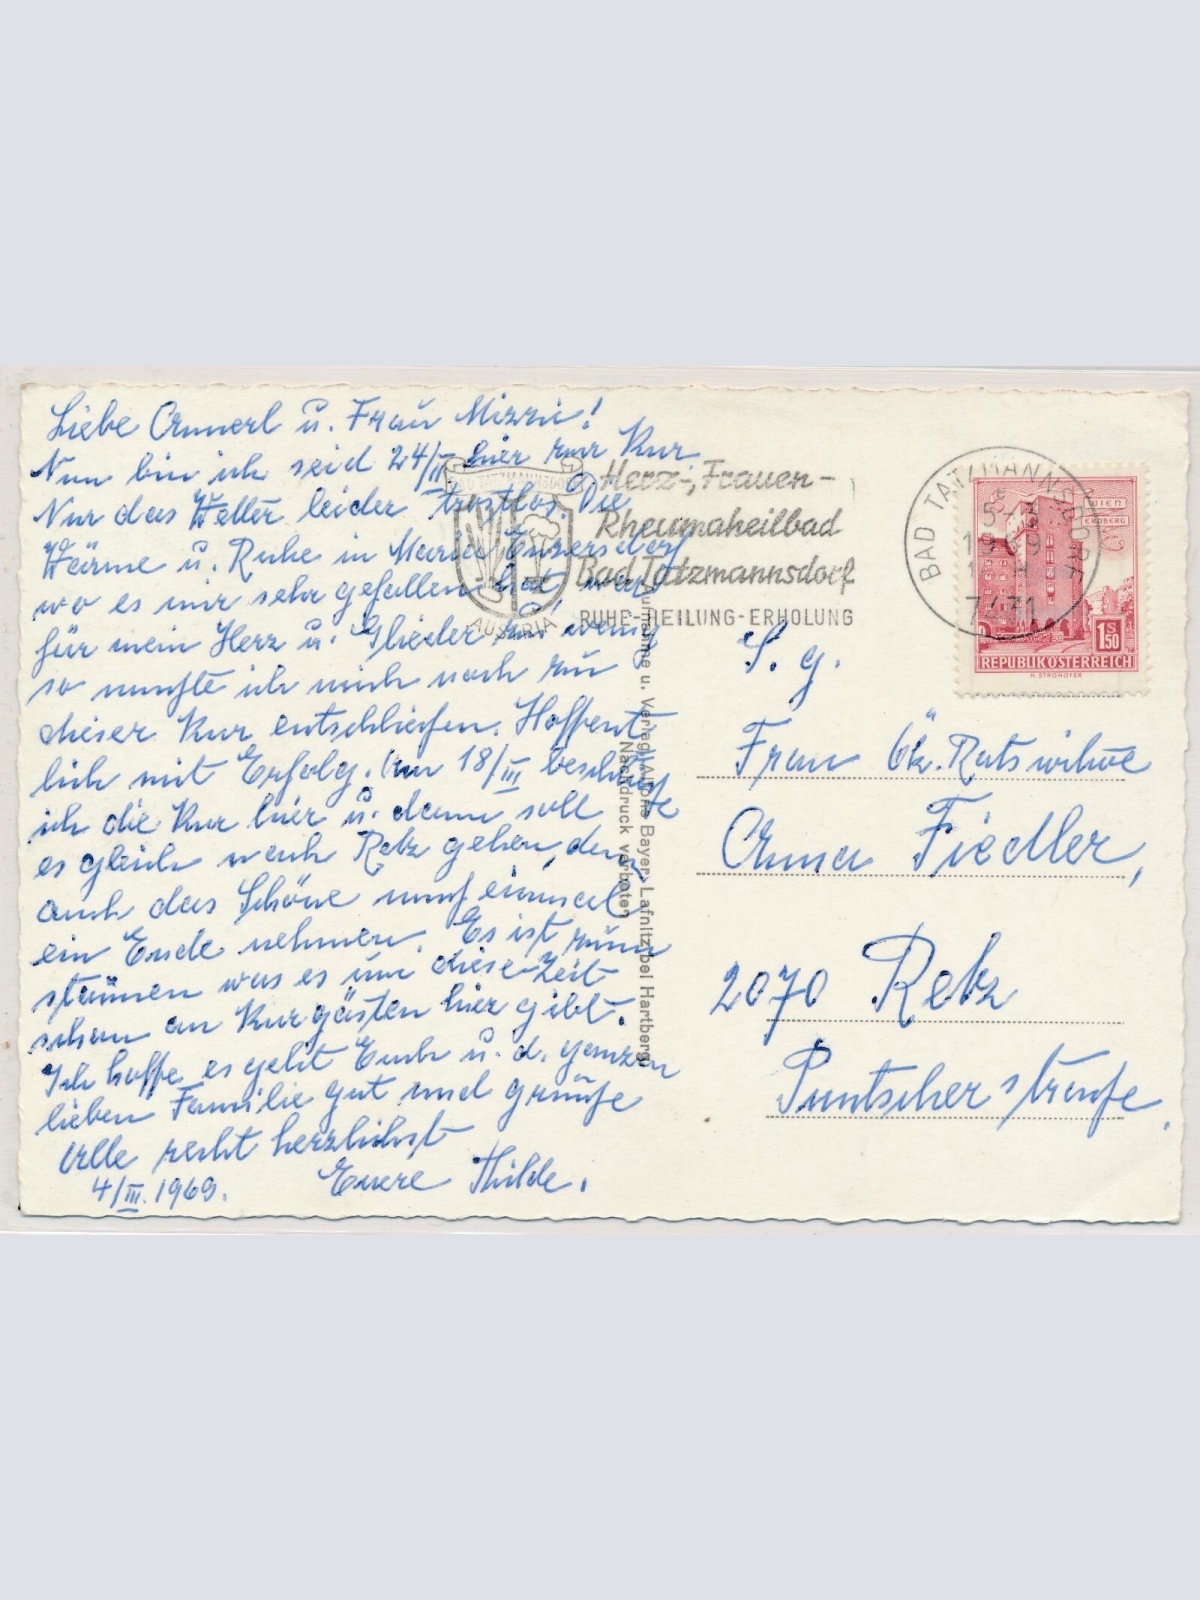 Liebe Annerl u. Frau Mizzi!
Nun bin ich seid 24/II hier zur Kur
Nur das Wetter leider trostlos. Die
Wärme u. Ruhe in Maria Enzersdorf
wo es mir sehr gefallen hat, war
für mein Herz u. Glieder zu wenig
so mußte ich mich noch zu
dieser Kur entschließen. Hoffent
lich mit Erfolg. Am 18/III beschließe
ich die Kur hier u. dann soll
es gleich nach Retz gehen, denn
auch das Schöne muß einmal
ein Ende nehmen. Es ist zum
staunen was es um diese Zeit
schon an Kurgästen hier gibt.
Ich hoffe es geht Euch u. d. ganzen
lieben Familie gut und grüße
Alle recht herzlichst
4/III. 1969. Euere Thilde.
BAD TATZMANNSDORF
AUSTRIA
Herz-, Frauen-
Rheumaheilbad
Bad Tatzmannsdorf
RUHE-HEILUNG-ERHOLUNG
BAD TATZMANNSDORF
5.-3.
1969
7431
WIEN
ERDBERG
1 S 50
REPUBLIK ÖSTERREICH
H. STROHOFER
Aufnahme u. Verlag Alfons Bayer, Lafnitz bei Hartberg
Nachdruck verboten
S. g.
Frau Ök. Ratswitwe
Anna Fiedler,
2070 Retz
Puntscherstraße.